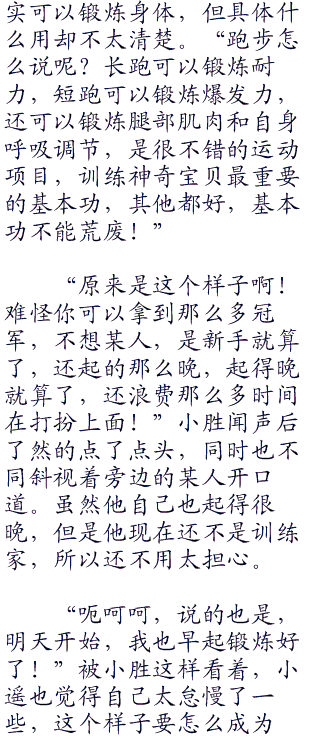 实可以锻炼身体，但具体什
么用却不太清楚。“跑步怎
么说呢？长跑可以锻炼耐
力，短跑可以锻炼爆发力，
还可以锻炼腿部肌肉和自身
呼吸调节，是很不错的运动
项目，训练神奇宝贝最重要
的基本功，其他都好，基本
功不能荒废！”
“原来是这个样子啊！
难怪你可以拿到那么多冠
军，不想某人，是新手就算
了，还起的那么晚，起得晚
就算了，还浪费那么多时间
在打扮上面！”小胜闻声后
了然的点了点头，同时也不
同斜视着旁边的某人开口
道。虽然他自己也起得很
晚，但是他现在还不是训练
家，所以还不用太担心。
“呃呵呵，说的也是，
明天开始，我也早起锻炼好
了！”被小胜这样看着，小
遥也觉得自己太怠慢了一
些，这个样子要怎么成为